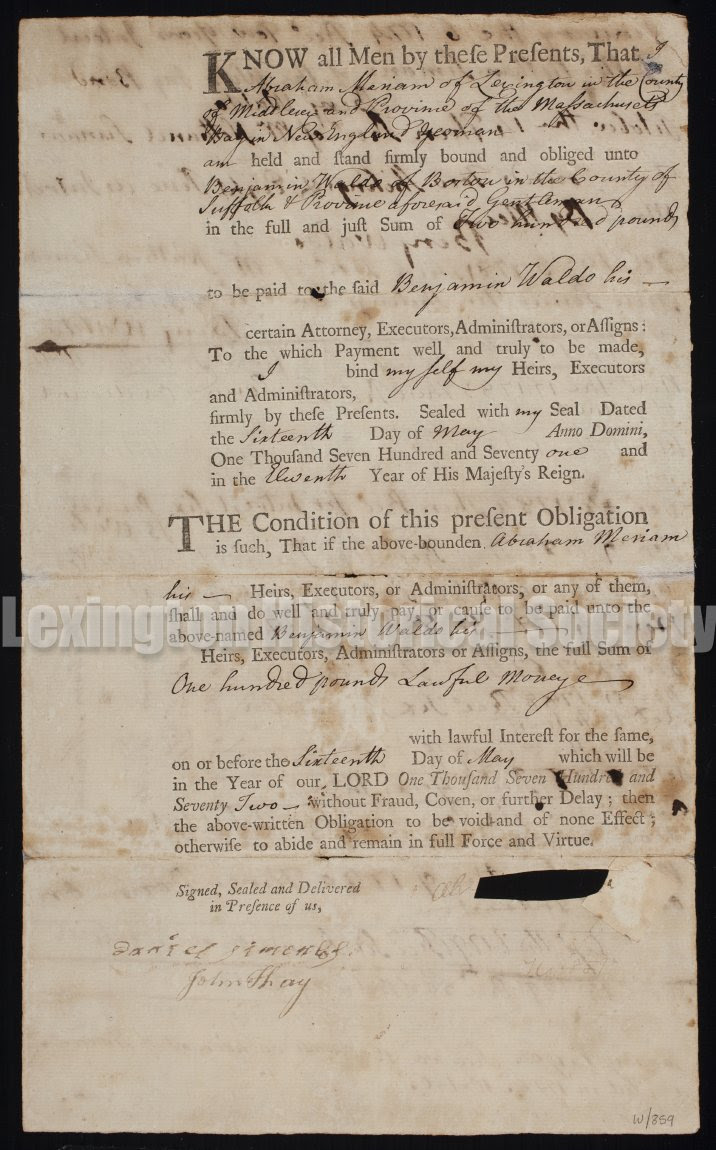 KNOW all Men by theſe Preſents, That I
Abraham Meriam of Lexington in the County
of Middlesex and Province of the Massachusets
Bay in New England Yeoman
am held and ſtand firmly bound and obliged unto
Benjamin Waldo of Boston in the County of
Suffolk & Province aforesaid Gentleman
in the full and juſt Sum of Two hundred pounds
to be paid to the ſaid Benjamin Waldo his
certain Attorney, Executors, Adminiſtrators, or Aſſigns:
To the which Payment well and truly to be made,
I bind my self my Heirs, Executors
and Adminiſtrators,
firmly by theſe Preſents. Sealed with my Seal Dated
the Sixteenth Day of May Anno Domini,
One Thouſand Seven Hundred and Seventy one and
in the Eleventh Year of His Majeſty's Reign.
THE Condition of this preſent Obligation
is ſuch, That if the above-bounden Abraham Meriam
his Heirs, Executors, or Adminiſtrators, or any of them,
ſhall and do well and truly pay, or cauſe to be paid unto the
Lexington Historical Society
above-named Benjamin Waldo his
Heirs, Executors, Adminiſtrators or Aſſigns, the full Sum of
One hundred pounds Lawful Money
with lawful Intereſt for the ſame,
on or before the Sixteenth Day of May which will be
in the Year of our LORD One Thouſand Seven Hundred and
Seventy Two without Fraud, Coven, or further Delay; then
the above-written Obligation to be void and of none Effect;
otherwiſe to abide and remain in full Force and Virtue.
Signed, Sealed and Delivered
in Preſence of us,
Daniel Simonds
John Thay
W/859